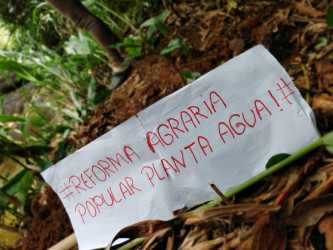 #REFORMA AGRARIA
POPULAR PLANTA AGUA!#